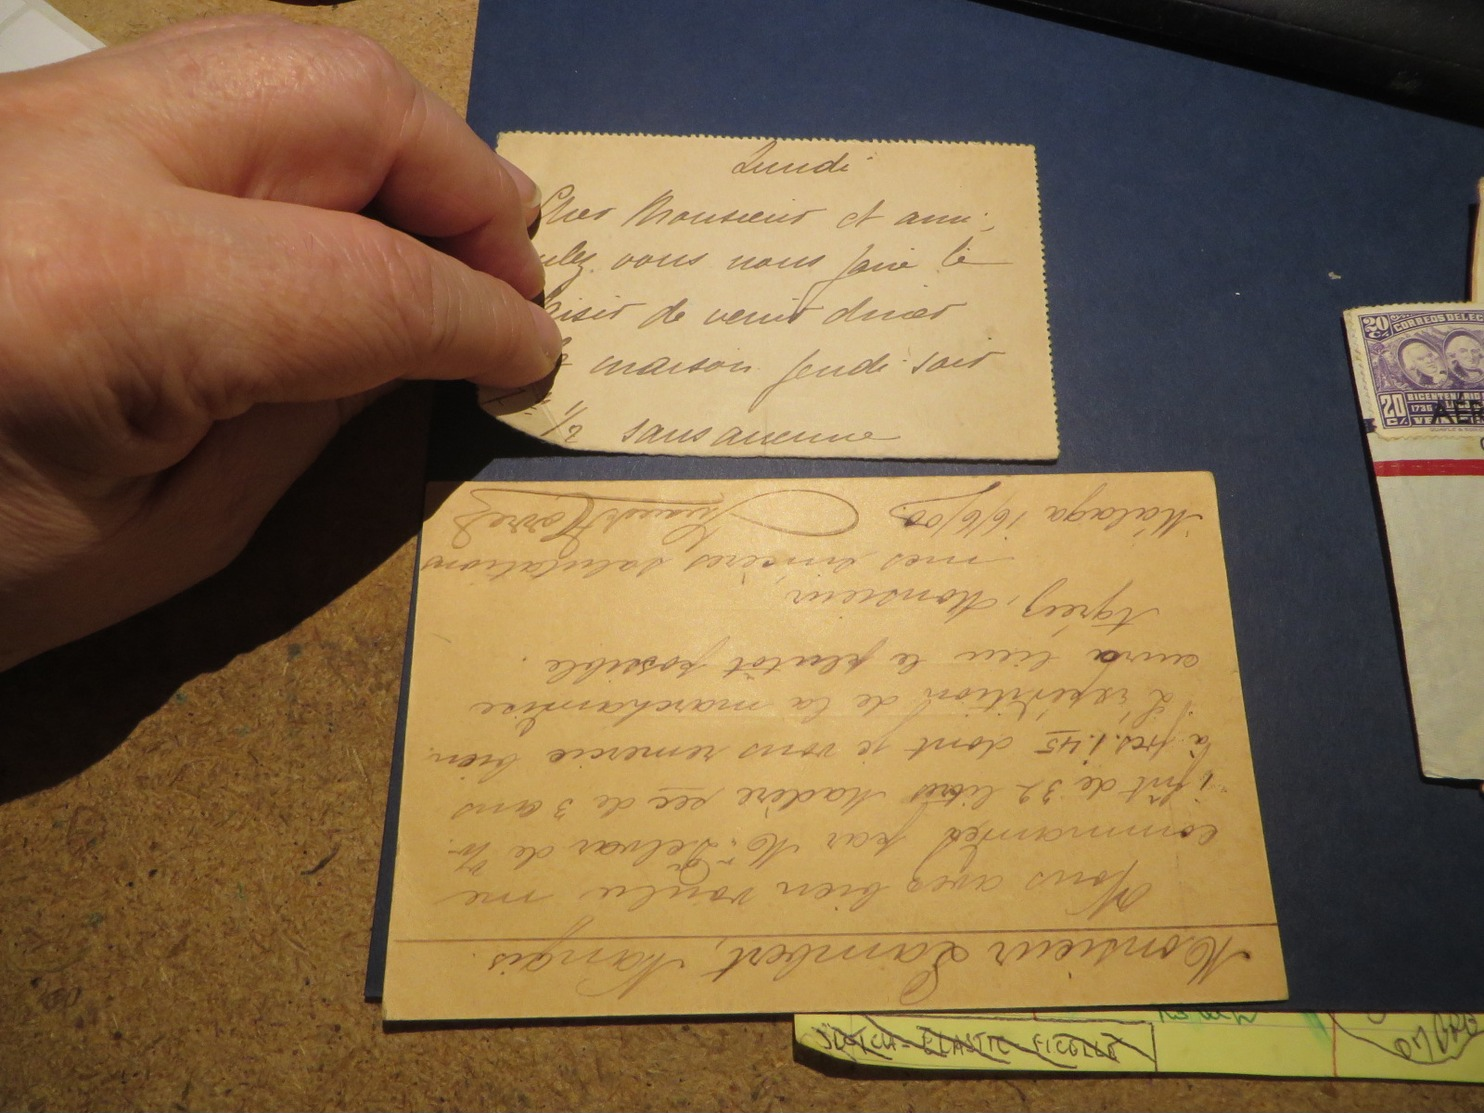 Lundi
Cher Monsieur et ami,
vous nous faire le
de venir diner
maison jeudi soir
1/2 sans aucune
Monsieur Lambert, Nangis.
Vous avez bien voulu me
commander par Mr. de
de 32 litres Madère sec de 3 ans
à frcs. 1.45 dont je vous remercie bien.
L'expédition de la marchandise
aura lieu le plutôt possible.
Agréez, Monsieur
mes sincères salutations
Málaga 16/6/00.
CORREOS DEL EC
20
20
SCOTCH - ELASTIC - FICELLE